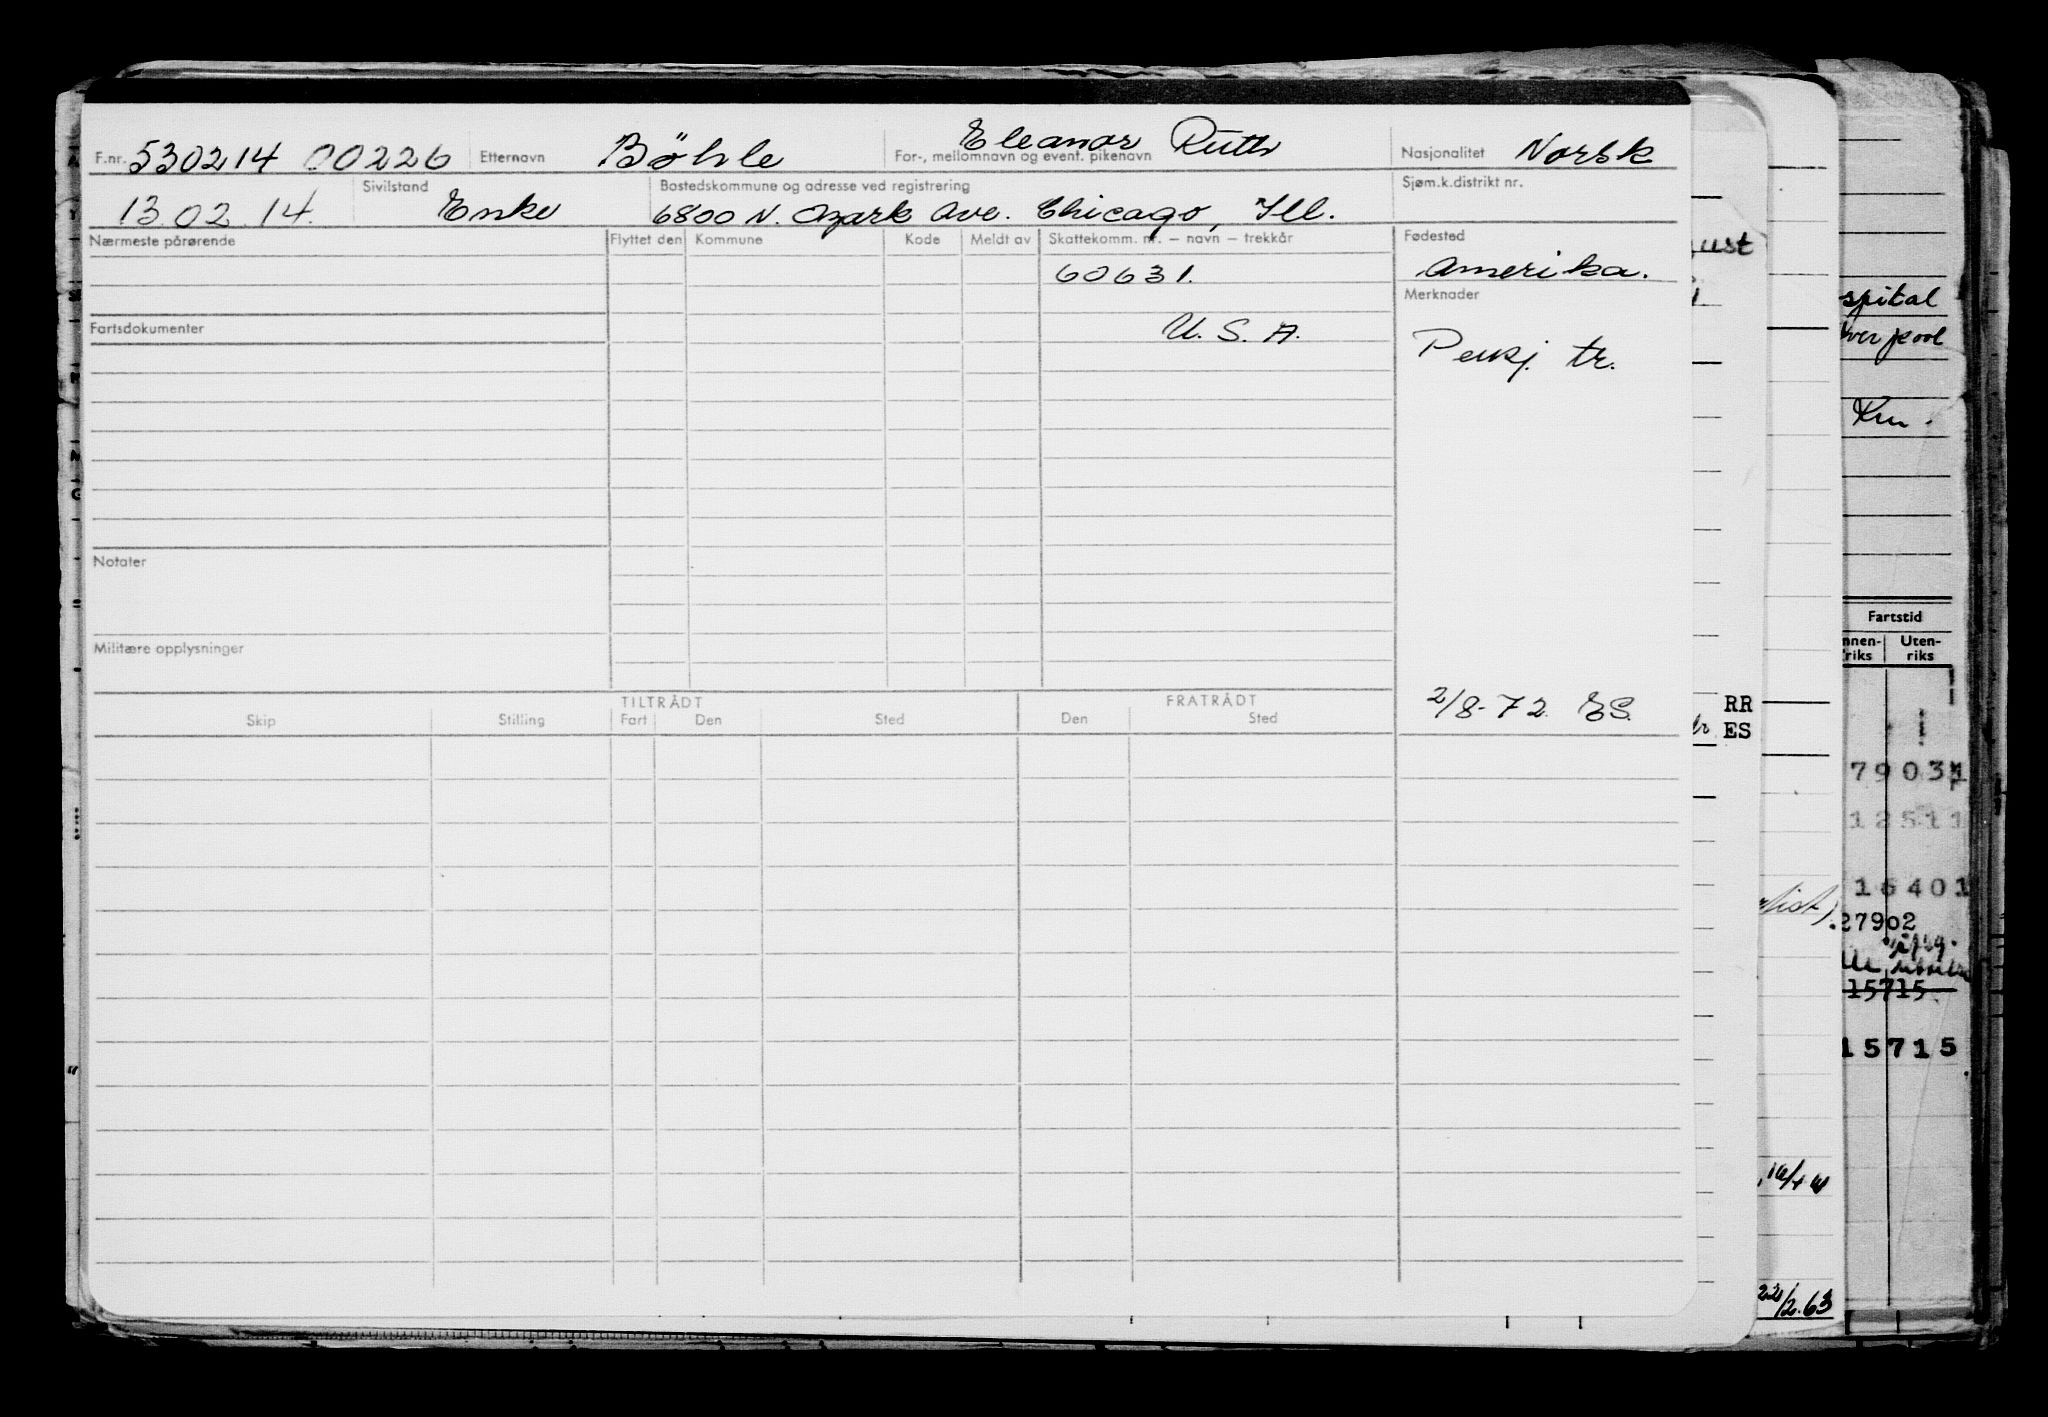 F.nr. 530214 00226 Etternavn Böhle For-, mellomnavn og event. pikenavn Eleanor Ruth Nasjonalitet Norsk
13.02.14. Sivilstand Enke Bostedskommune og adresse ved registrering 6800 N. Ozark Ave. Chicago, Ill. Sjøm.k.distrikt nr.
Nærmeste pårørende Flyttet den Kommune Kode Meldt av Skattekomm. nr. – navn – trekkår Fødested
60631. Amerika.
Merknader
Fartsdokumenter U. S. A.
Pensj. tr.
Notater
Militære opplysninger
TILTRÅDT FRATRÅDT
2/8-72. ES.
Skip Stilling Fart Den Sted Den Sted
RR
ES
ust
spital
verpool
Km.
Fartstid
nnen-riks Uten-riks
79031
12511
16401
27902
15715
15715
22/2.63